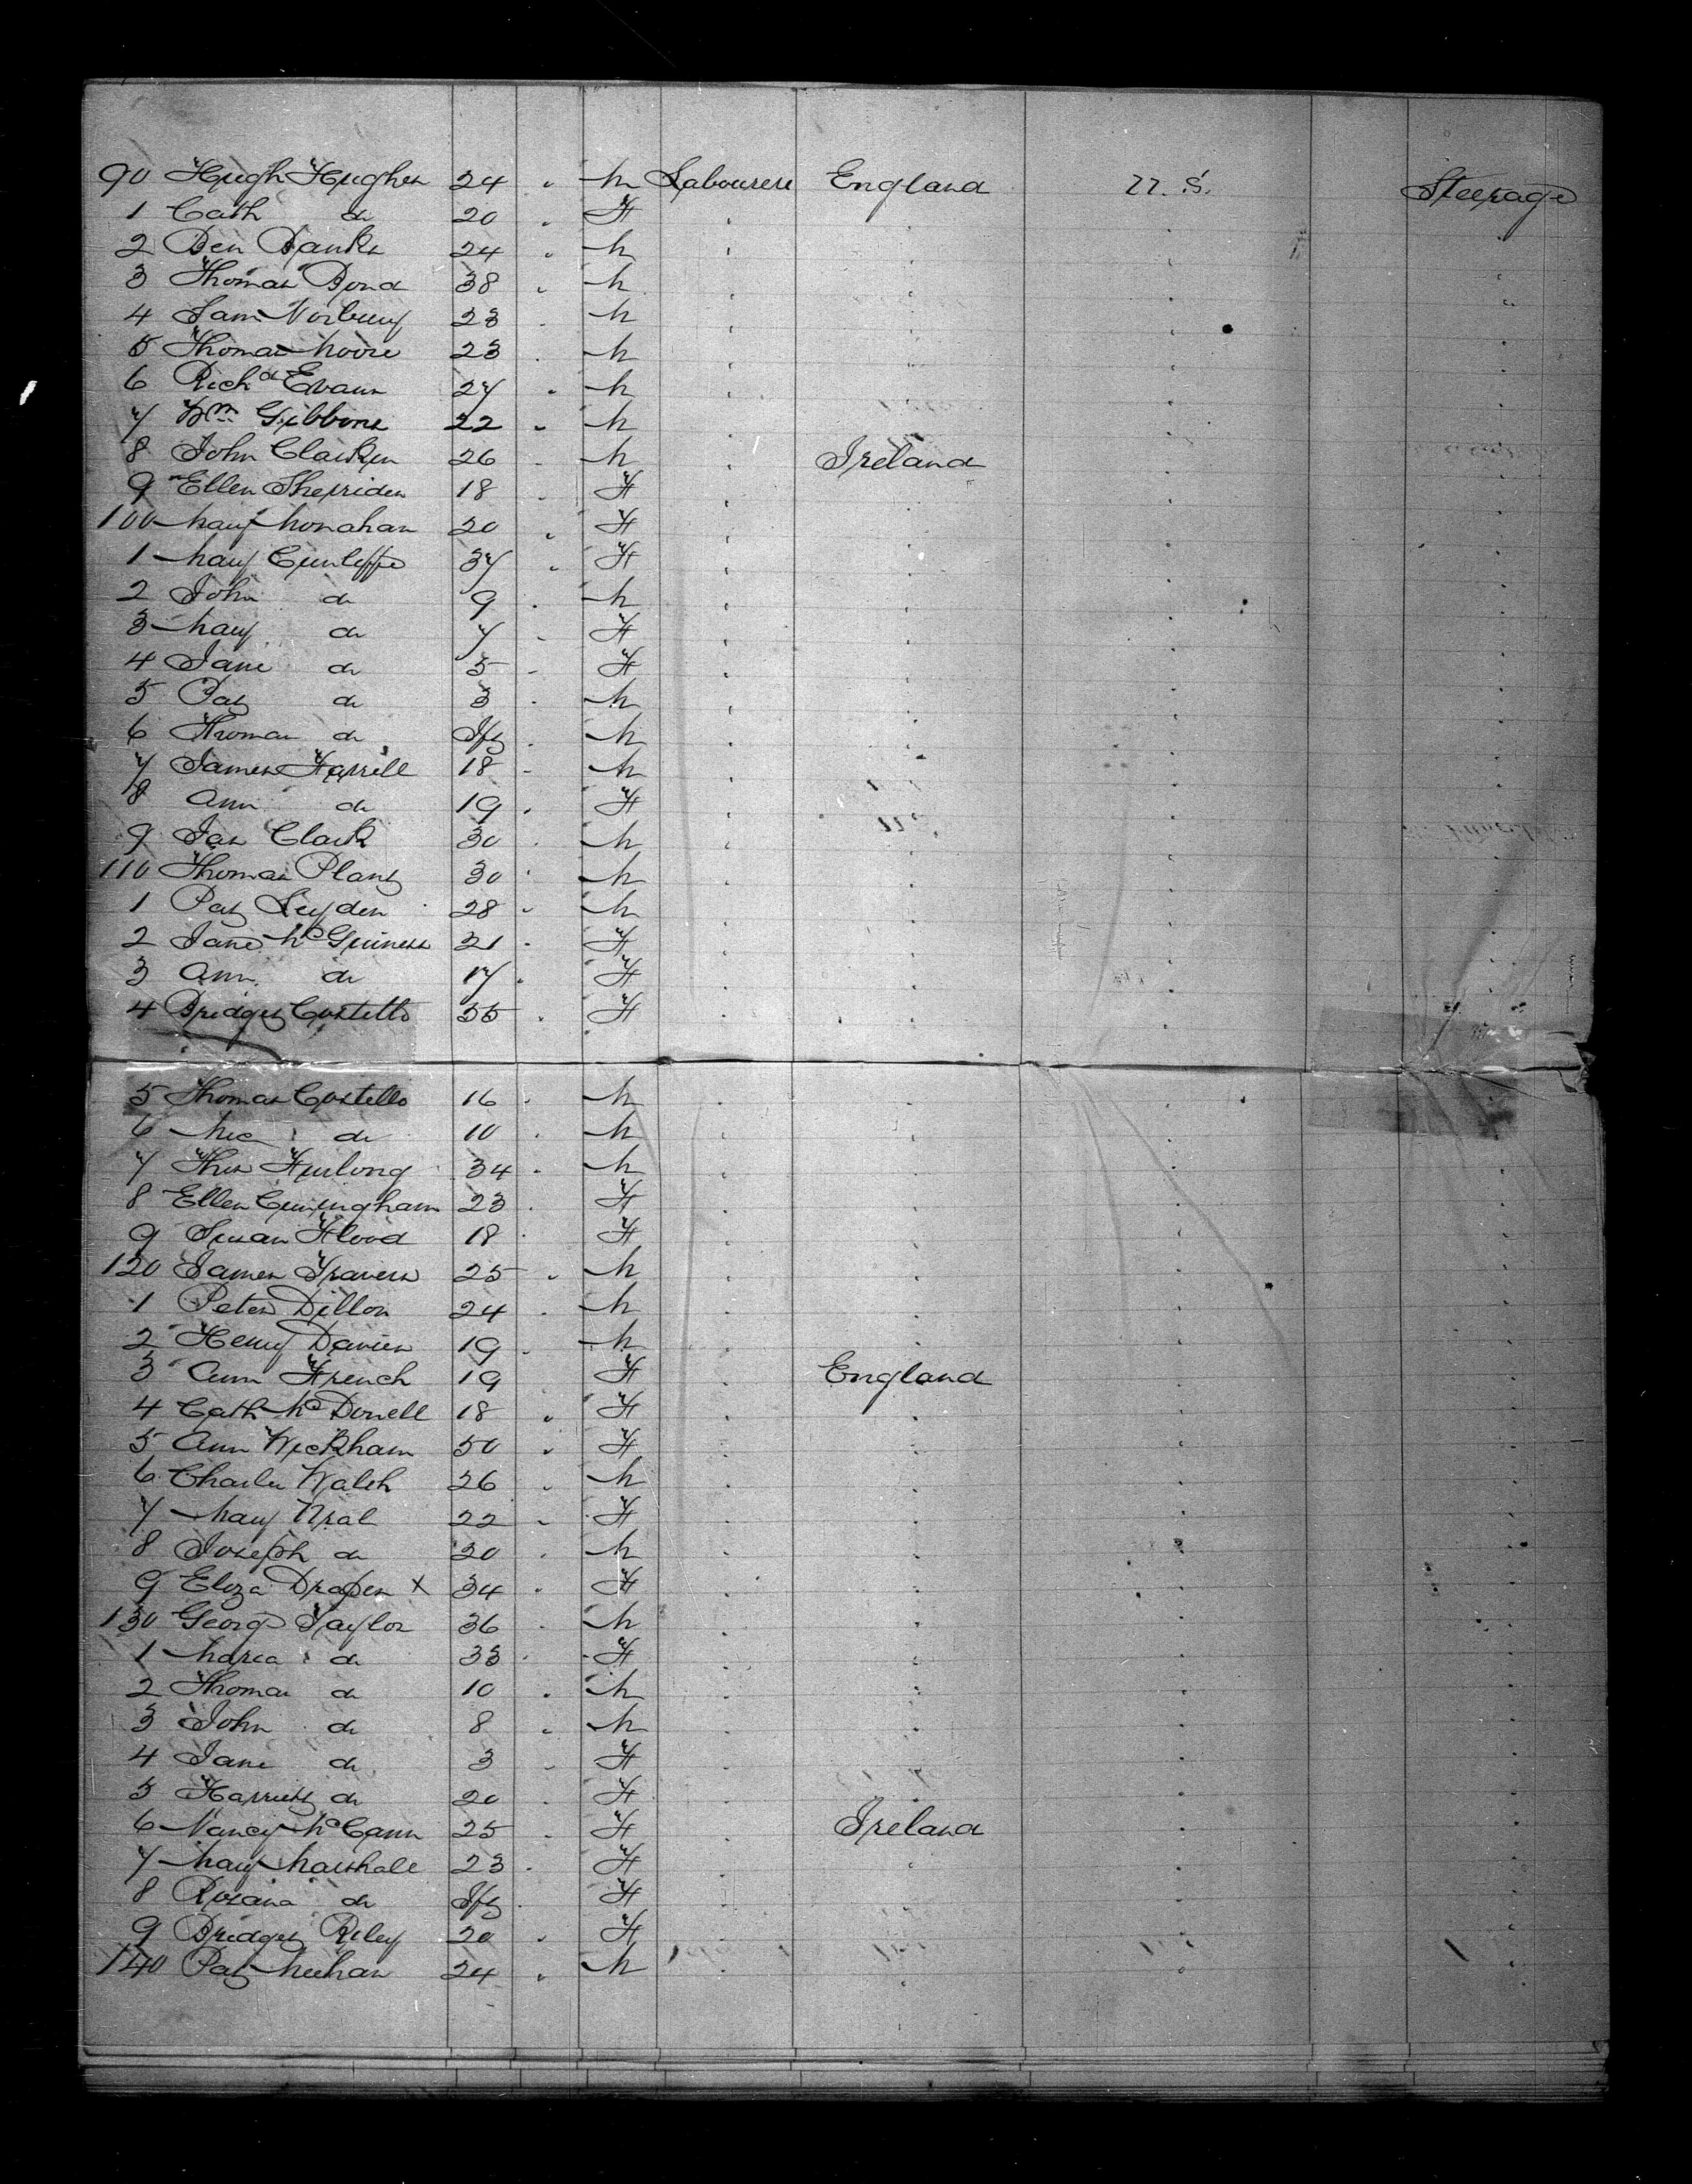 90 Hugh Hughes 24 " M Labourers England U. S. Steerage
1 Cath do 20 " F " " " "
2 Ben Banks 24 " M " " " "
3 Thomas Bond 38 " M " " " "
4 Sam Norbury 23 " M " " " "
5 Thomas Moore 23 " M " " " "
6 Richd Evans 27 " M " " " "
7 Wm Gibbons 22 " M " " " "
8 John Clarken 26 " M " Ireland " "
9 Ellen Sherriden 18 " F " " " "
100 Mary Monahan 20 " F " " " "
1 Mary Cunliffe 37 " F " " " "
2 John do 9 " M " " " "
3 Mary do 7 " F " " " "
4 Jane do 5 " F " " " "
5 Pat do 3 " M " " " "
6 Thomas do Inft " M " " " "
7 James Farrell 18 " M " " " "
8 Ann do 19 " F " " " "
9 Jas Clark 30 " M " " " "
110 Thomas Plant 30 " M " " " "
1 Pat Leyden 28 " M " " " "
2 Jane McGuiness 21 " F " " " "
3 Ann do 17 " F " " " "
4 Bridget Costello 35 " F " " " "
5 Thomas Costello 16 " M " " " "
6 Mic do 10 " M " " " "
7 Thos Furlong 34 " M " " " "
8 Ellen Cuningham 23 " F " " " "
9 Susan Flood 18 " F " " " "
120 James Travers 25 " M " " " "
1 Peter Dillon 24 " M " " " "
2 Henry Davies 19 " M " " " "
3 Ann French 19 F " England " "
4 Cath McDonell 18 " F " " " "
5 Ann Wickham 50 " F " " " "
6 Charles Walsh 26 " M " " " "
7 Mary 22 " F " " " "
8 Joseph do 20 " M " " " "
9 Eliza Draper x 34 " F " " " "
130 George Taylor 36 " M " " " "
1 Maria do 33 " F " " " "
2 Thomas do 10 " M " " " "
3 John do 8 " M " " " "
4 Jane do 3 " F " " " "
5 Harriett do 20 " F " " " "
6 Nancy McCann 25 " F " Ireland " "
7 Mary Marshall 23 " F " " " "
8 Rosana do Inft " F " " " "
9 Bridget Riley 20 " F " " " "
140 Pat Meehan 24 " M " " " "